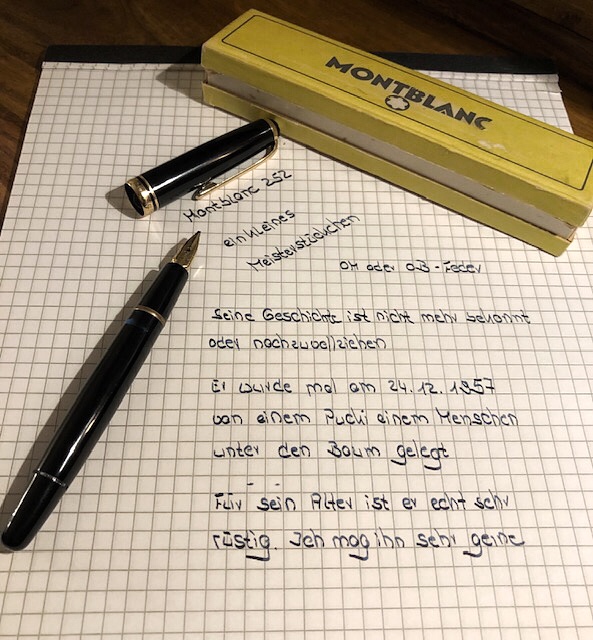 MONTBLANC
Montblanc 252
ein kleines
Meisterstückchen
OM oder OB-Feder
Seine Geschichte ist nicht mehr bekannt
oder nachzuvollziehen
Er wurde mal am 24.12.1957
von einem Puchi einem Menschen
unter den Baum gelegt
Für sein Alter ist er echt sehr
rüstig. Ich mag ihn sehr gerne